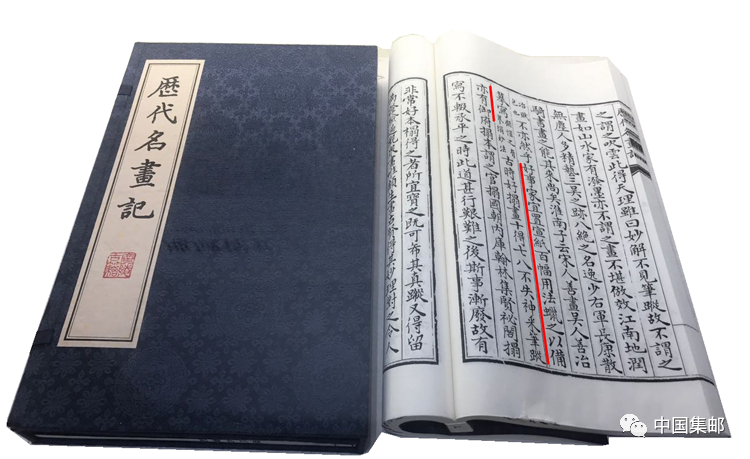 歷代名畫記
之謂之吹雲此得天理雖曰妙解不見筆蹤故不謂之
畫如山水家有潑墨亦不謂之畫不堪倣效江南地潤
無塵人多精藝三吳之跡八絕之名逸少右軍長康散
騎書畫之能其來尚矣淮南子云宋人善畫吳人善治
不亦然乎好事家宜置宣紙百幅用法蠟之以備
摹寫 古時好搨畫十得七八不失神采筆蹤
亦有御府搨本謂之官搨國朝內庫翰林集賢祕閣搨
寫不輟承平之時此道甚行艱難之後斯事漸廢故有
非常好本搨得之者所宜寶之既可希其真蹤又得留
顧生畫古賢得其妙理對之令人
中国集邮